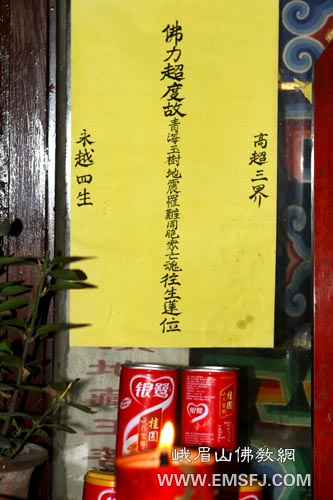 高超三界
佛力超度故青海玉樹地震罹難同胞眾亡魂往生蓮位
永越四生
地藏王菩
银鹭
桂圆
银鹭
桂圆
峨眉山佛教網
WWW.EMSFJ.COM